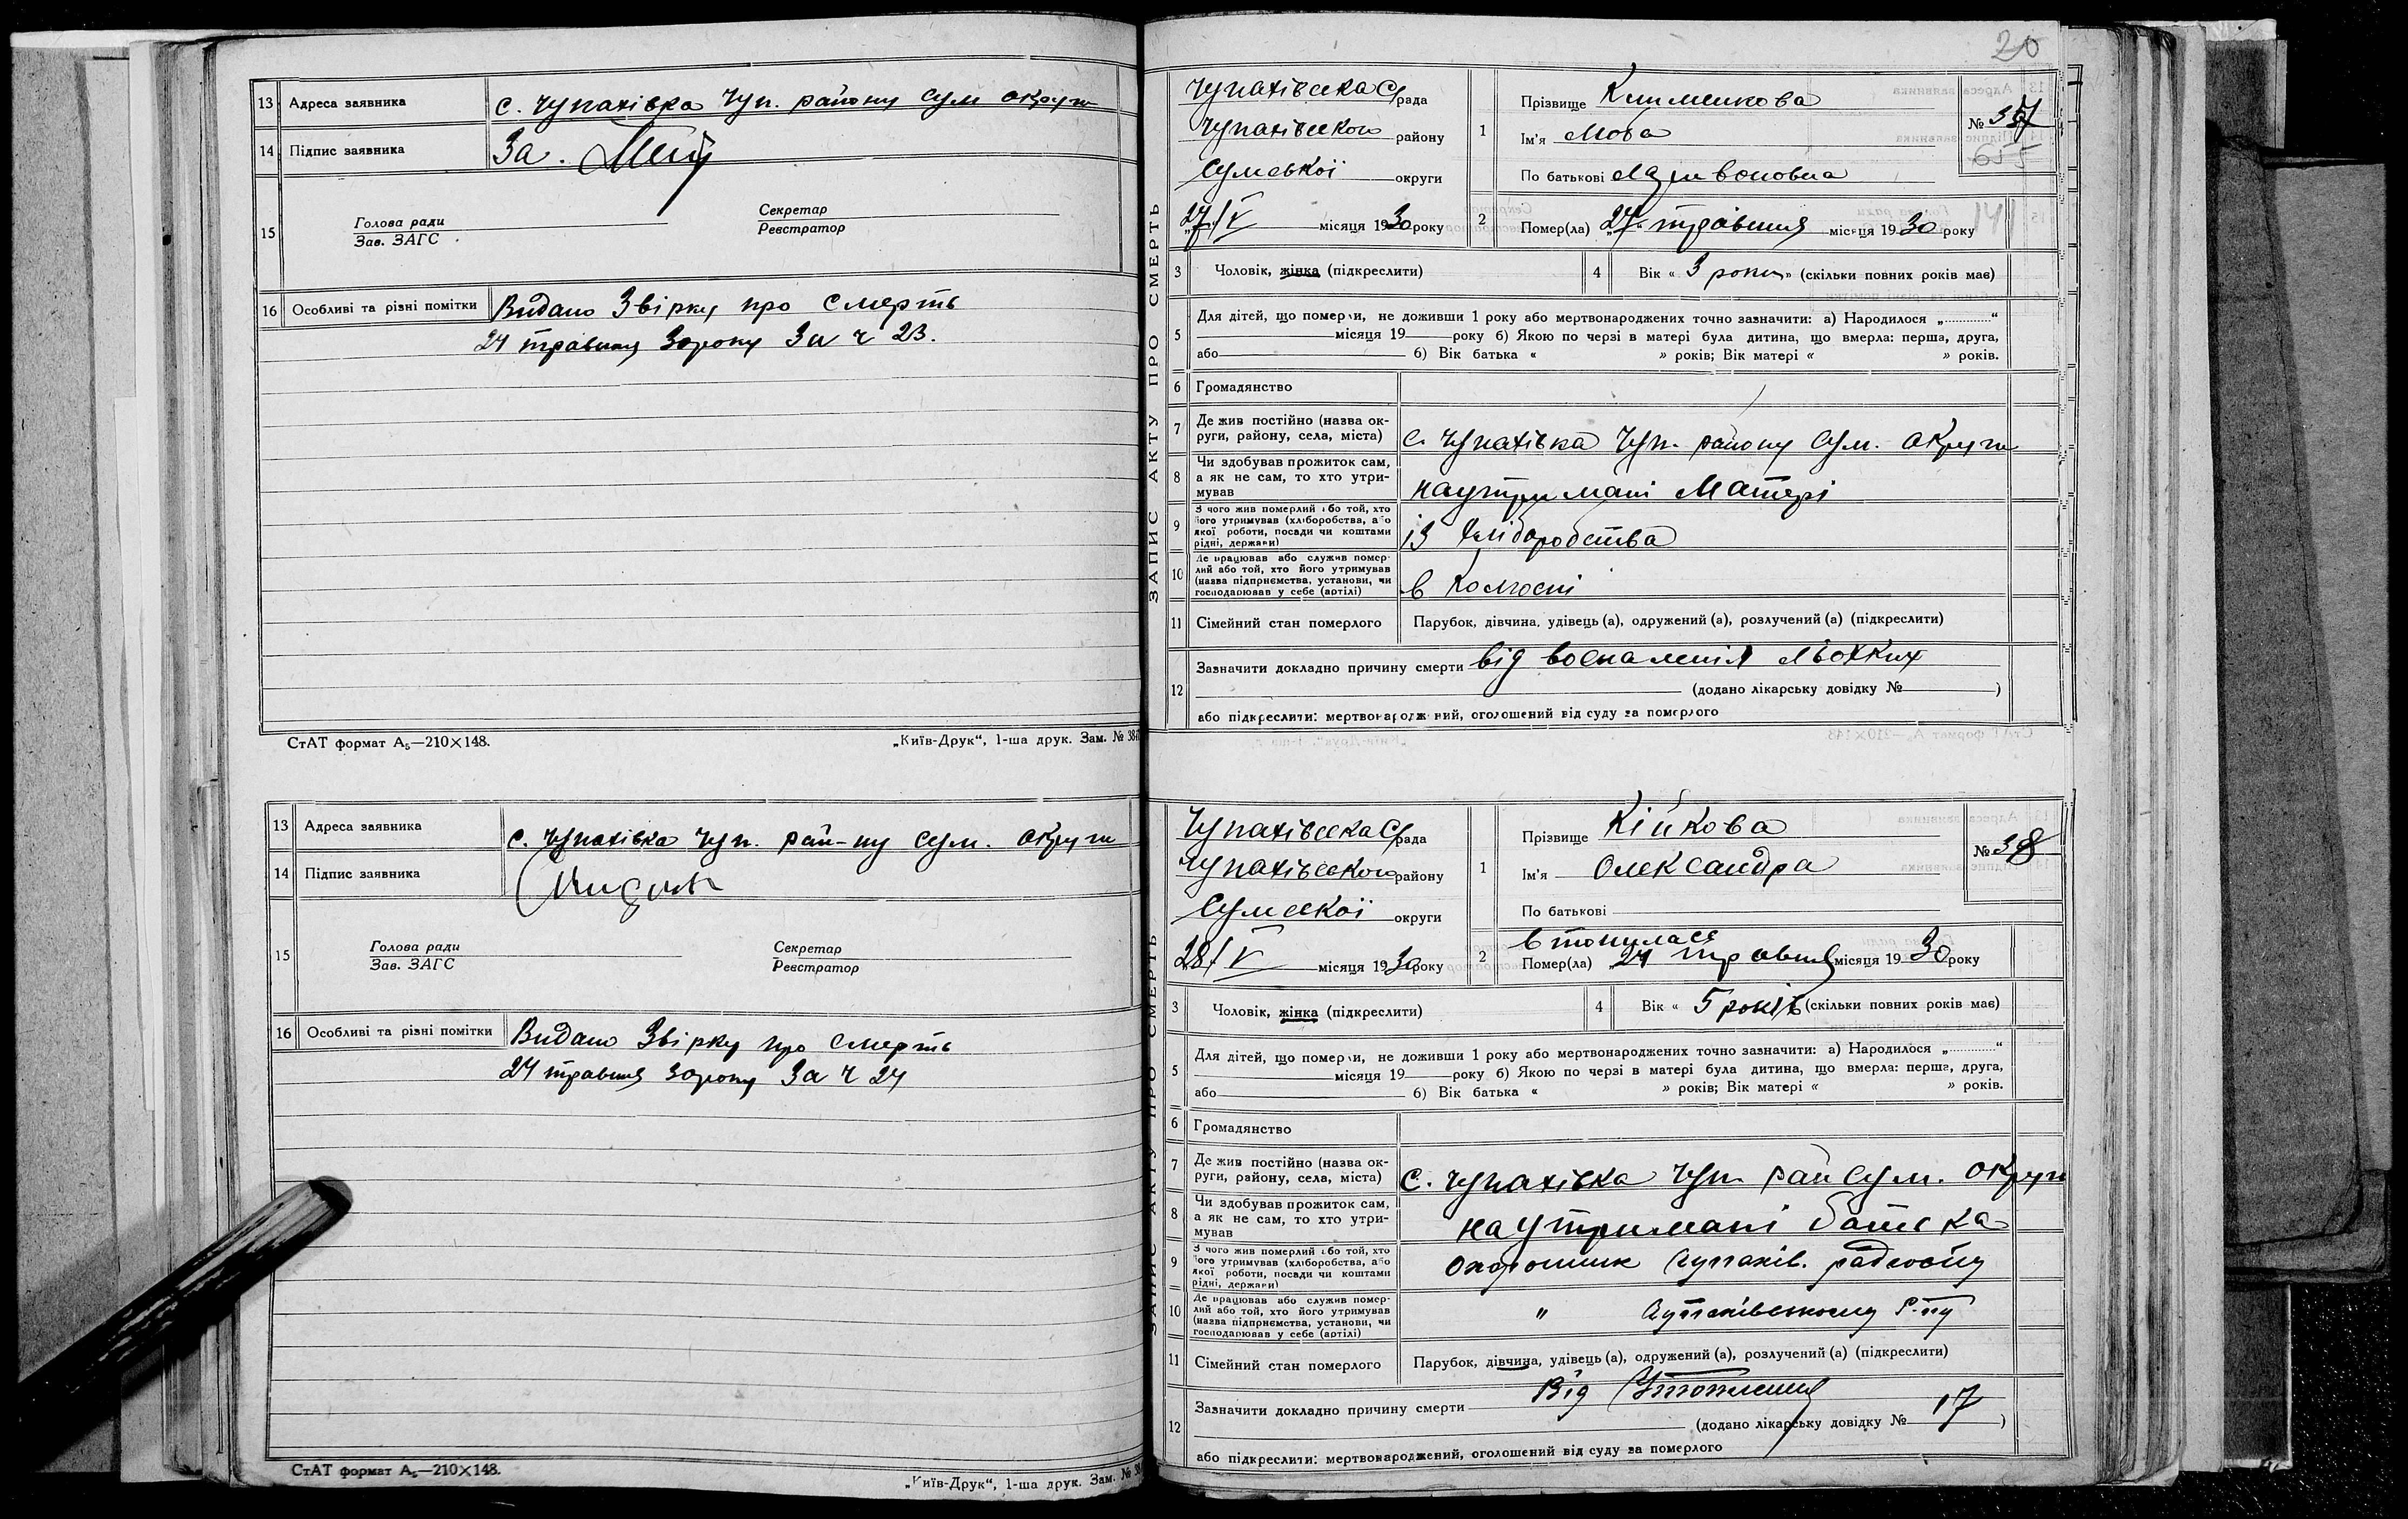 13 Адреса заявника с. Чупахівка Чуп. району Сум округи
14 Підпис заявника За.
15 Голова ради
Зав. ЗАГС
Секретар
Реєстратор
16 Особливі та різні помітки Видано Звірку про Смерть
24 травня 30 року За ч 23.
СтАТ формат А₅—210×148.
„Київ-Друк“, 1-ша друк. Зам. №
13 Адреса заявника с. Чупахівка Чуп. рай-ну Сум. округи
14 Підпис заявника
15 Голова ради
Зав. ЗАГС
Секретар
Реєстратор
16 Особливі та різні помітки Видано Звірку про Смерть
24 травня 30 року За ч 24
СтАТ формат А₅—210×148.
„Київ-Друк“, 1-ша друк. Зам. №
20
ЗАПИС АКТУ ПРО СМЕРТЬ
Чупахівська С/рада
Чупахівського району
Сумської округи
27/V місяця 1930 року
1 Прізвище Клименкова
Ім'я
По батькові
№ 37
655
2 Помер(ла) „24“ травня місяця 1930 року
14
3 Чоловік, жінка (підкреслити)
4 Вік « 3 роки » (скільки повних років має)
5 Для дітей, що померли, не доживши 1 року або мертвонароджених точно зазначити: а) Народилося „............“
місяця 19 року б) Якою по черзі в матері була дитина, що вмерла: перша, друга,
або б) Вік батька « » років; Вік матері « » років.
6 Громадянство
7 Де жив постійно (назва округи, району, села, міста) с. Чупахівка Чуп. району Сум. округи
8 Чи здобував прожиток сам, а як не сам, то хто утримував на утримані Матері
9 З чого жив померлий або той, хто його утримував (хліборобства, або якої роботи, посади чи коштами рідні, держави) із хліборобства
10 Де працював або служив померлий або той, хто його утримував (назва підприємства, установи, чи господарював у себе (артілі) в колгоспі
11 Сімейний стан померлого Парубок, дівчина, удівець (а), одружений (а), розлучений (а) (підкреслити)
12 Зазначити докладно причину смерти від воспаленія льохких
(додано лікарську довідку № )
або підкреслити: мертвонароджений, оголошений від суду за померлого
ЗАПИС АКТУ ПРО СМЕРТЬ
Чупахівська С/рада
Чупахівського району
Сумської округи
28/V місяця 1930 року
1 Прізвище Кійкова
Ім'я Олександра
По батькові
№ 38
втопилася
2 Помер(ла) „24 травня місяця 1930 року
3 Чоловік, жінка (підкреслити)
4 Вік « 5 років (скільки повних років має)
5 Для дітей, що померли, не доживши 1 року або мертвонароджених точно зазначити: а) Народилося „............“
місяця 19 року б) Якою по черзі в матері була дитина, що вмерла: перша, друга,
або б) Вік батька « » років; Вік матері « » років.
6 Громадянство
7 Де жив постійно (назва округи, району, села, міста) с. Чупахівка Чуп. рай Сум. округи
8 Чи здобував прожиток сам, а як не сам, то хто утримував на утримані батька
9 З чого жив померлий або той, хто його утримував (хліборобства, або якої роботи, посади чи коштами рідні, держави) Охоронник Чупахів. радгоспу
10 Де працював або служив померлий або той, хто його утримував (назва підприємства, установи, чи господарював у себе (артілі) " Чупахівському
11 Сімейний стан померлого Парубок, дівчина, удівець (а), одружений (а), розлучений (а) (підкреслити)
12 Зазначити докладно причину смерти Від Утоплення
(додано лікарську довідку № 17 )
або підкреслити: мертвонароджений, оголошений від суду за померлого